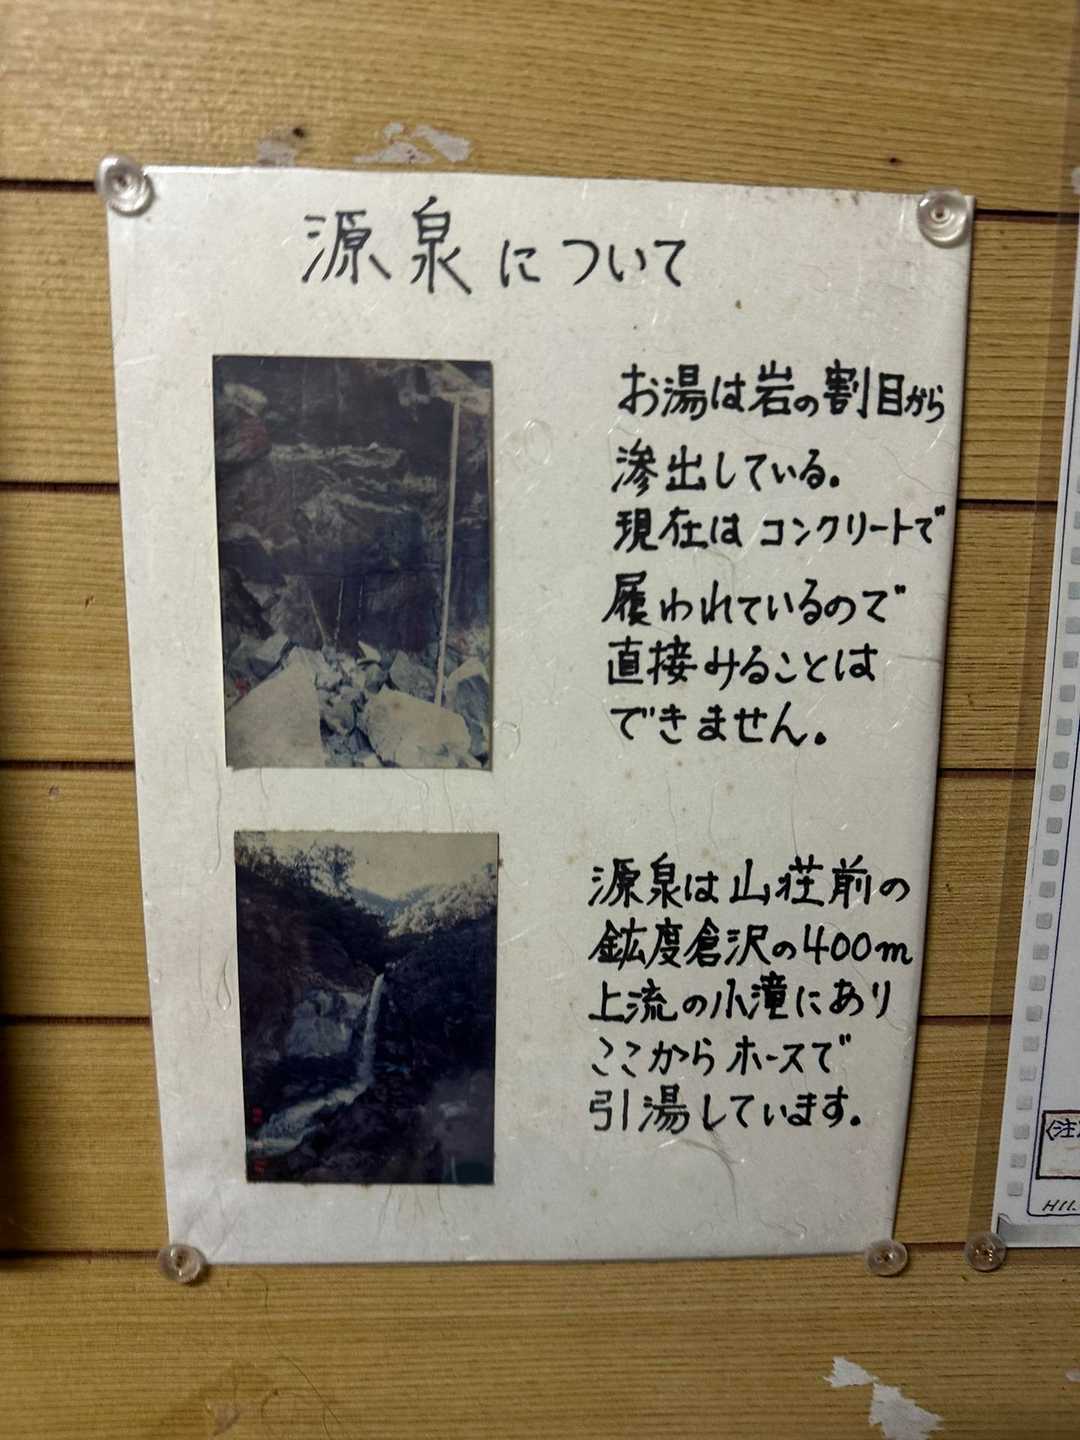 源泉について
お湯は岩の割目から
滲出している。
現在はコンクリートで
履われているので
直接みることは
できません。
源泉は山荘前の
鉱度倉沢の400m
上流の小滝にあり
ここからホースで
引湯しています。
〈注
H11.